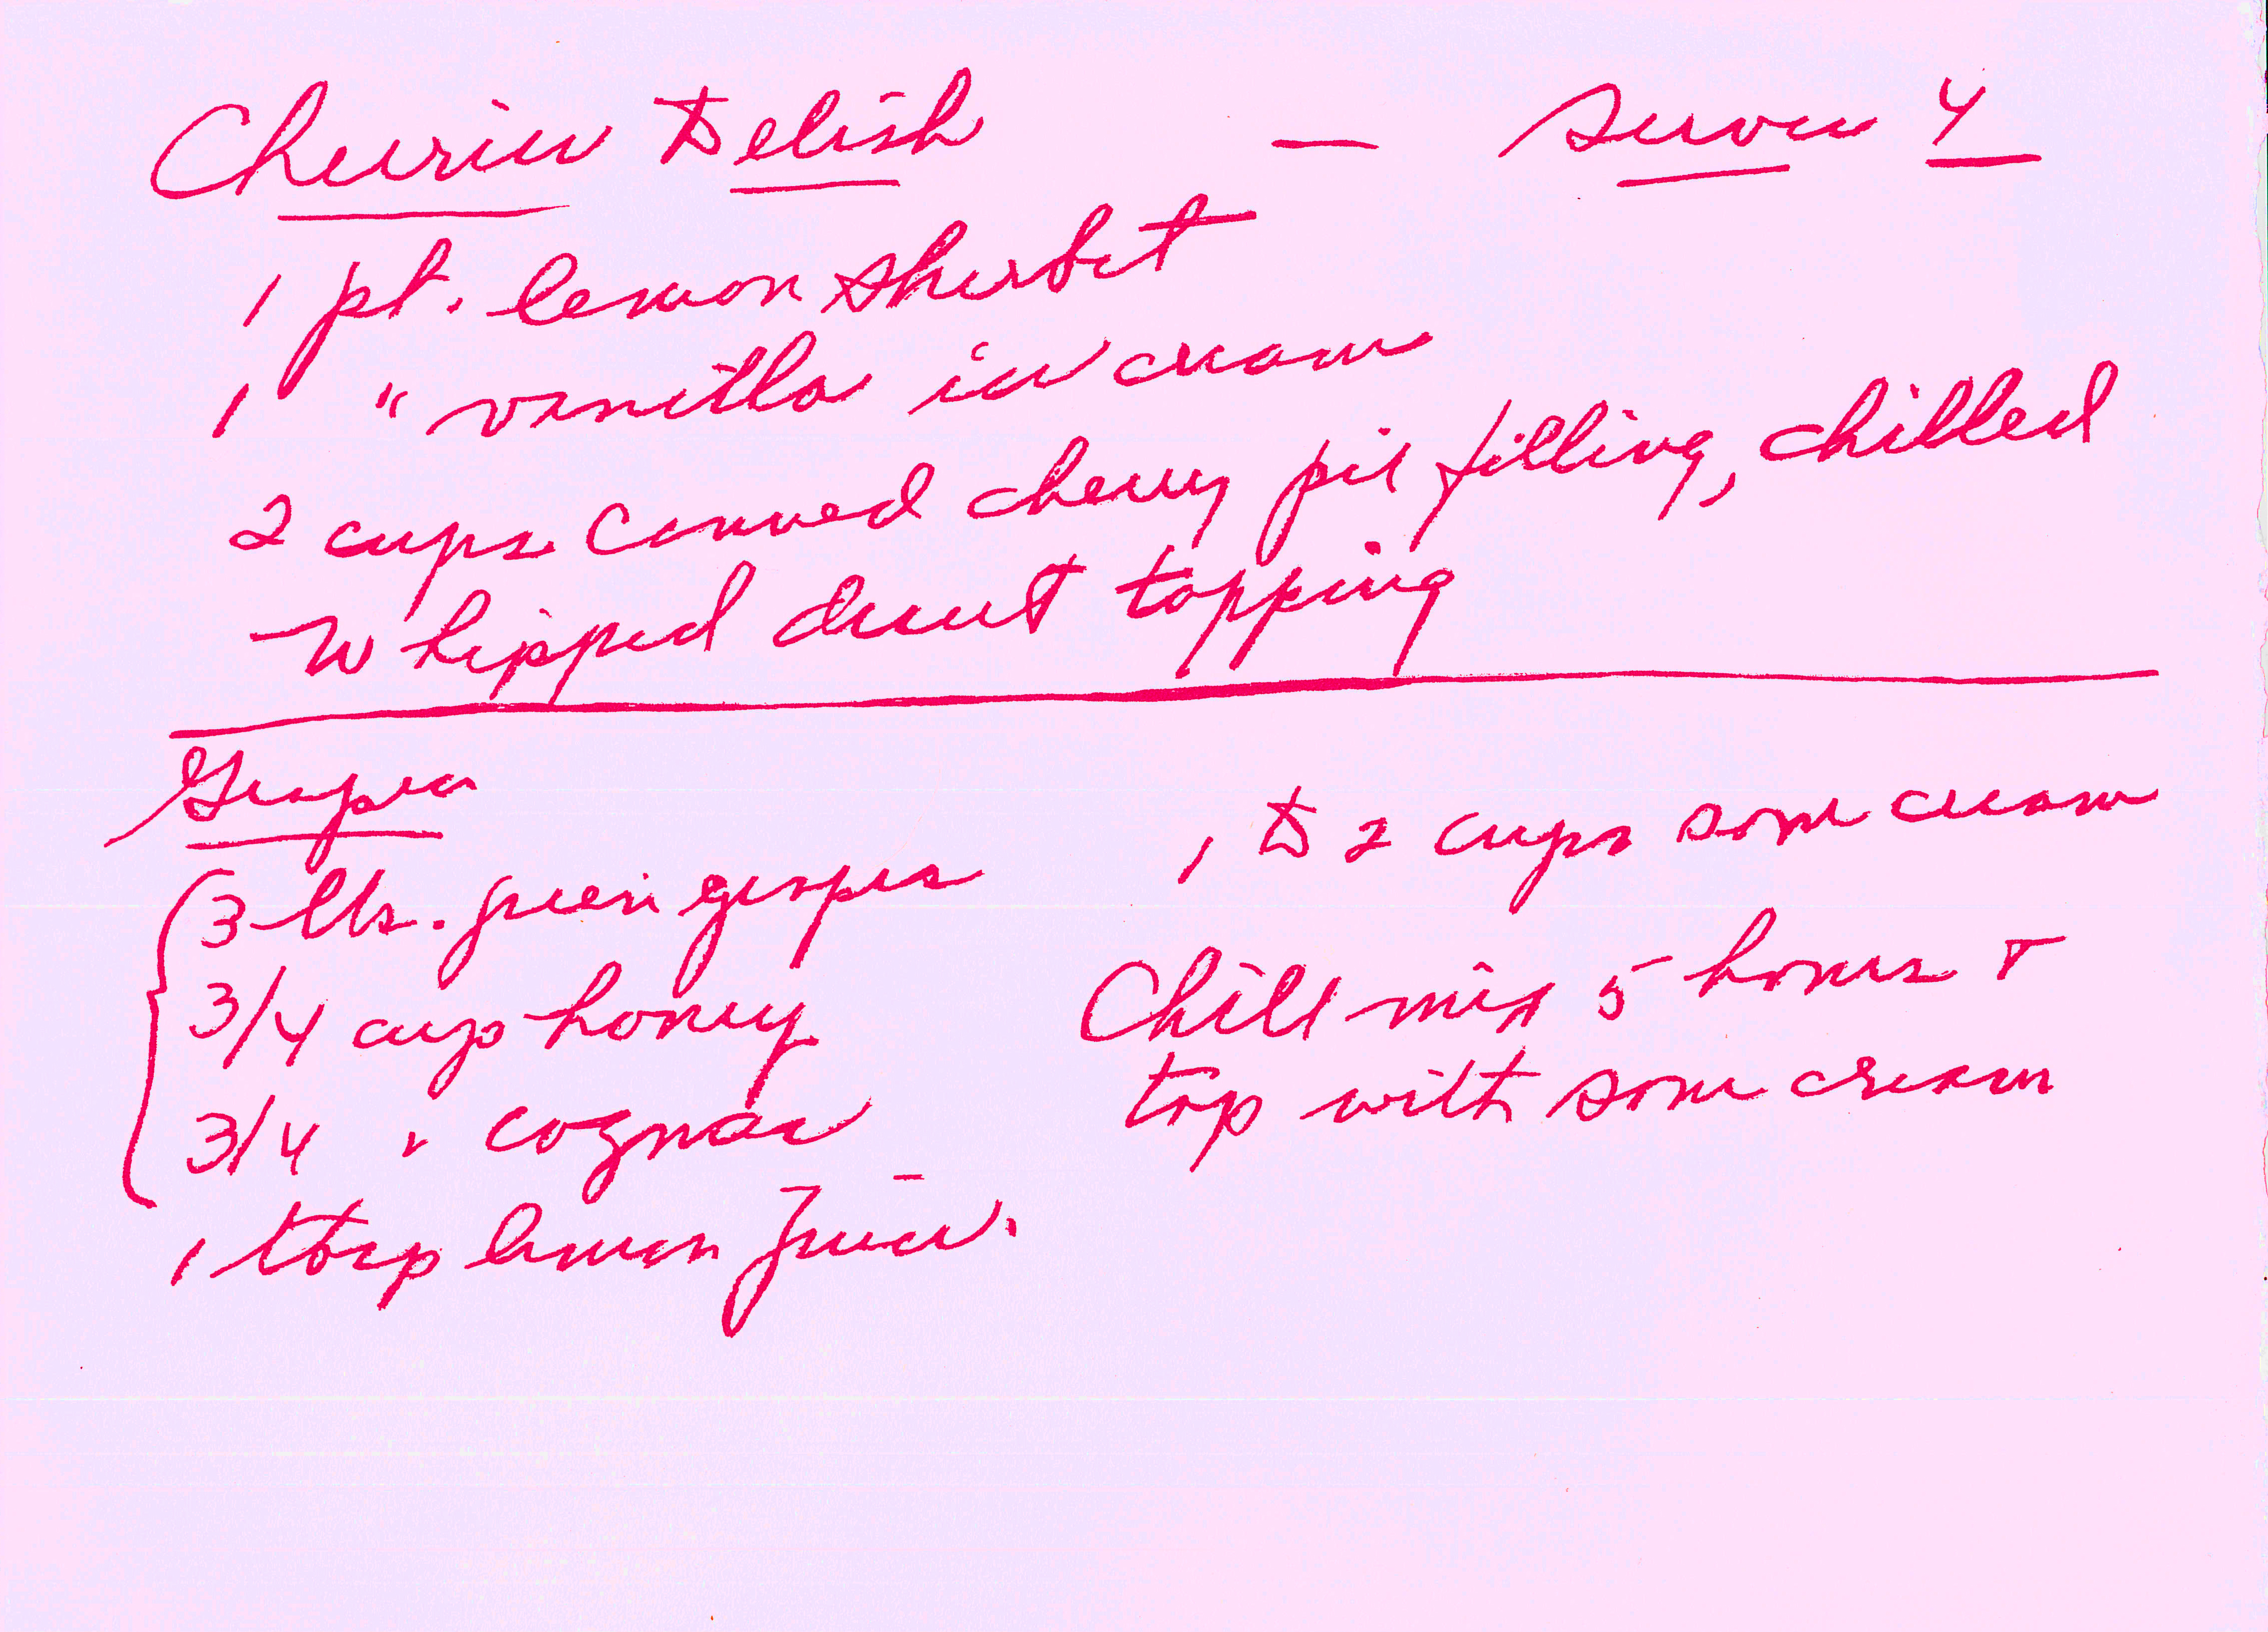 Cherries Delish — Serves 4
1 pt. lemon sherbet
1 " vanilla ice cream
2 cups canned cherry pie filling, chilled
Whipped dessert topping
Grapes
3 lbs. green grapes
3/4 cup honey
3/4 " cognac
1 tbsp lemon juice.
1 to 2 cups sour cream
Chill mix 5 hours +
top with sour cream